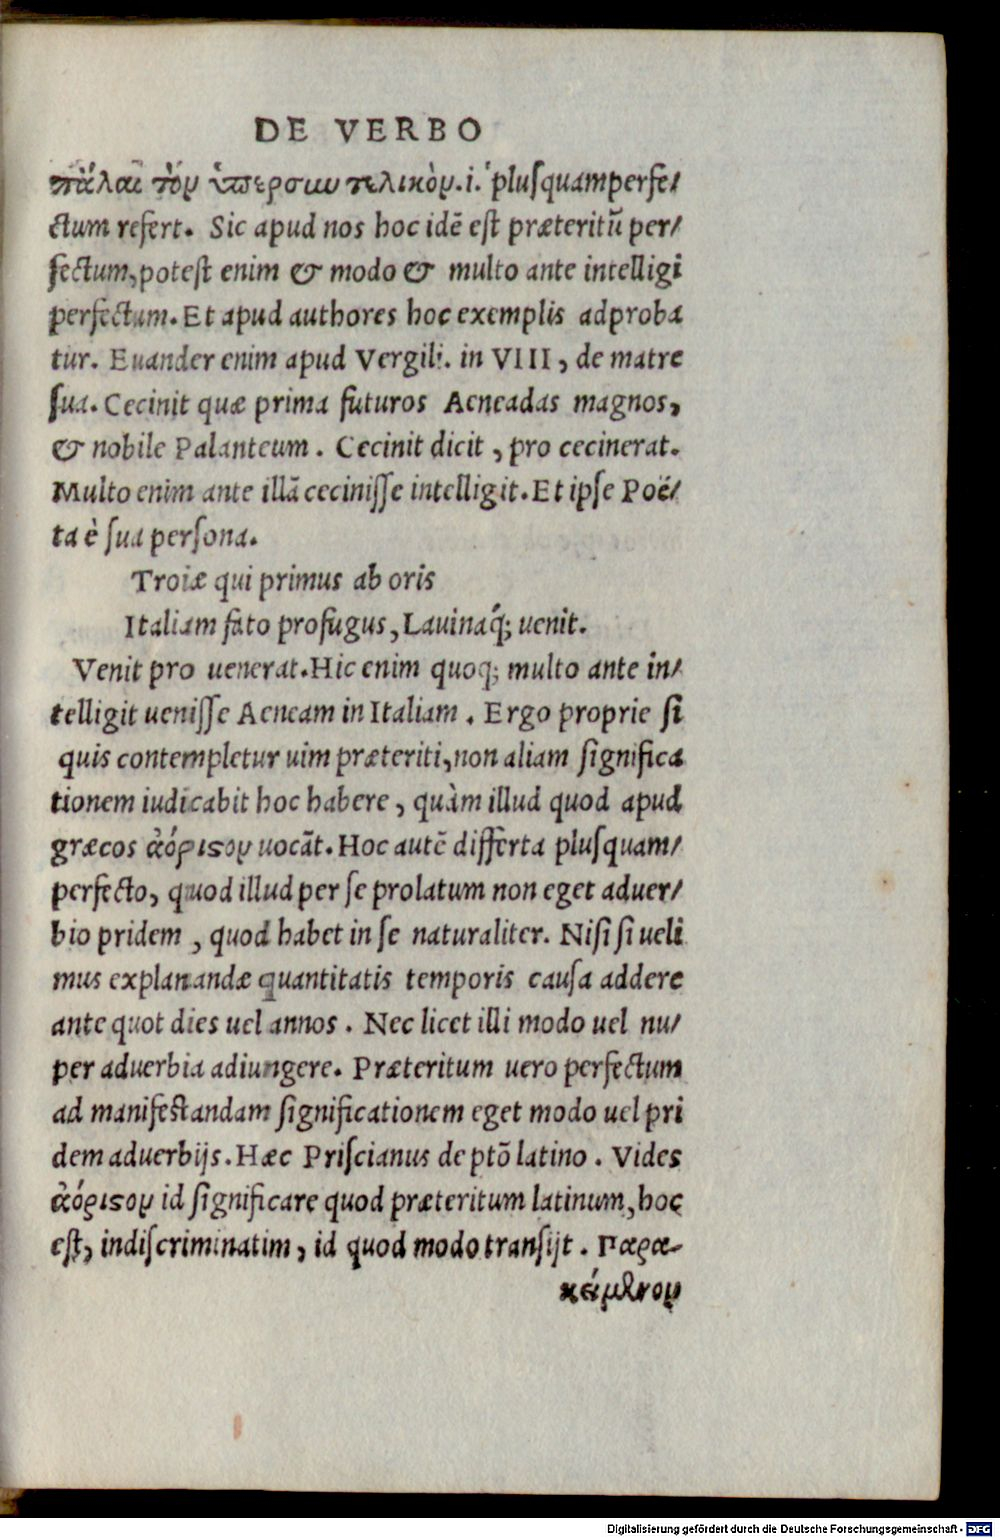 DE VERBO
πάλαι τὸν ὑπερσυντελικὸν.i. plusquamperfe/
ctum refert. Sic apud nos hoc idē est præteritū per/
fectum, potest enim & modo & multo ante intelligi
perfectum. Et apud authores hoc exemplis adproba
tur. Euander enim apud Vergili. in VIII, de matre
sua. Cecinit quæ prima futuros Aeneadas magnos,
& nobile Palanteum. Cecinit dicit, pro cecinerat.
Multo enim ante illā cecinisse intelligit. Et ipse Poë/
ta è sua persona.
Troiæ qui primus ab oris
Italiam fato profugus, Lauinaq́; uenit.
Venit pro uenerat. Hic enim quoq; multo ante in/
telligit uenisse Aeneam in Italiam. Ergo proprie si
quis contempletur uim præteriti, non aliam significa
tionem iudicabit hoc habere, quàm illud quod apud
græcos ἀόριϛον uocāt. Hoc autē differt a plusquam/
perfecto, quod illud per se prolatum non eget aduer/
bio pridem, quod habet in se naturaliter. Nisi si ueli
mus explanandæ quantitatis temporis causa addere
ante quot dies uel annos. Nec licet illi modo uel nu/
per aduerbia adiungere. Præteritum uero perfectum
ad manifestandam significationem eget modo uel pri
dem aduerbijs. Hæc Priscianus de ptō latino. Vides
ἀόριϛον id significare quod præteritum latinum, hoc
est, indiscriminatim, id quod modo transijt. Παρα-
κείμενον
Digitalisierung gefördert durch die Deutsche Forschungsgemeinschaft - DFG